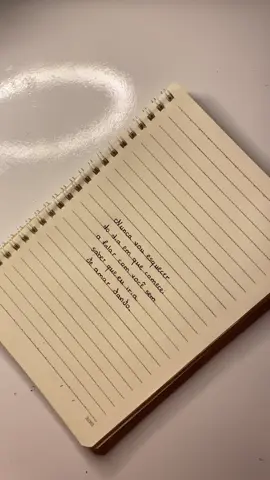 Nunca vou esquecer
do dia em que comecei
a falar com você sem
saber que eu iria
te amar tanto.